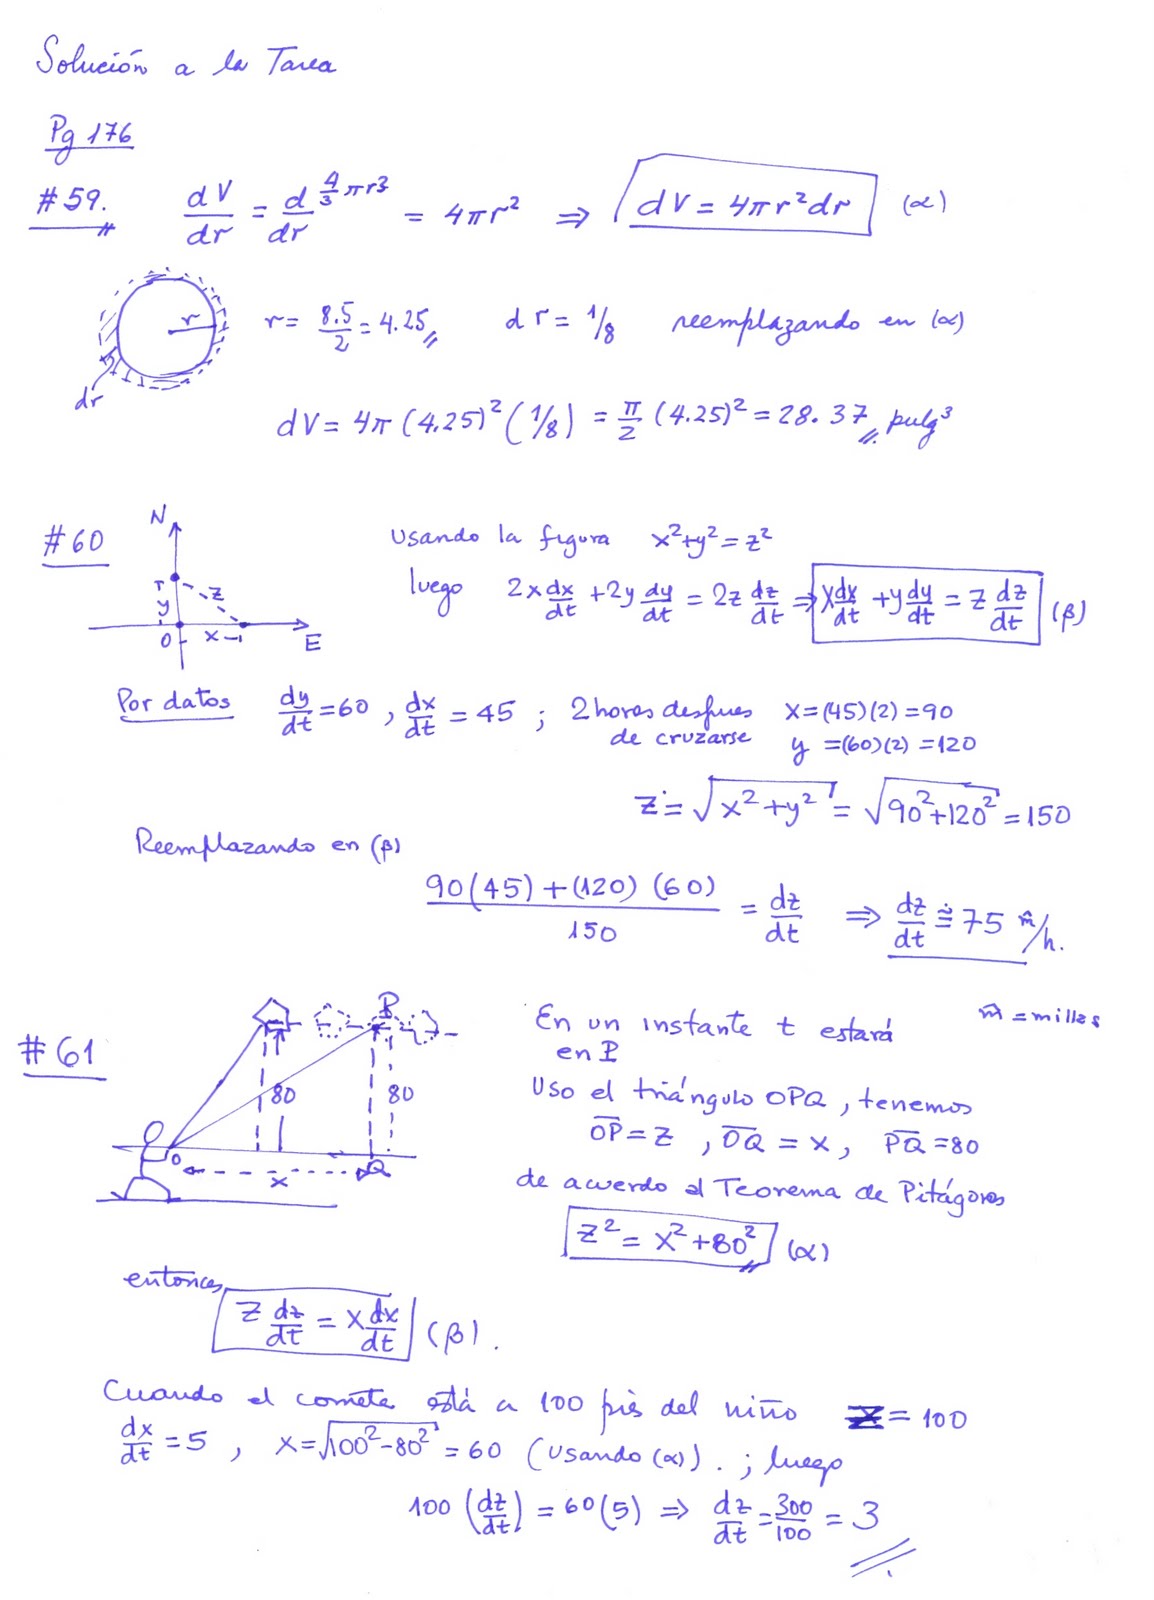 Solución a la Tarea
Pg 176
#59. dV/dr = d 4/3 πr³/dr = 4πr² ⇒ dV = 4πr²dr (α)
r
dr
r = 8.5/2 = 4.25 dr = 1/8 reemplazando en (α)
dV = 4π (4.25)² (1/8) = π/2 (4.25)² = 28.37 pulg³
#60
N
y
z
0
x
E
Usando la figura x²+y² = z²
luego 2x dx/dt + 2y dy/dt = 2z dz/dt ⇒ x dx/dt + y dy/dt = z dz/dt (β)
Por datos dy/dt = 60, dx/dt = 45 ; 2 horas despues x = (45)(2) = 90
de cruzarse y = (60)(2) = 120
z = √x² + y² = √90² + 120² = 150
Reemplazando en (β)
90(45) + (120)(60)/150 = dz/dt ⇒ dz/dt ≅ 75 m̂/h.
m̂ = millas
#61
P
80
80
O
Q
x
En un instante t estará
en P
Uso el triángulo OPQ, tenemos
OP = z, OQ = x, PQ = 80
de acuerdo al Teorema de Pitágoras
z² = x² + 80² (α)
entonces
z dz/dt = x dx/dt (β).
Cuando el cometa está a 100 pies del niño z = 100
dx/dt = 5, x = √100² - 80² = 60 (usando (α)). ; luego
100 (dz/dt) = 60(5) ⇒ dz/dt = 300/100 = 3